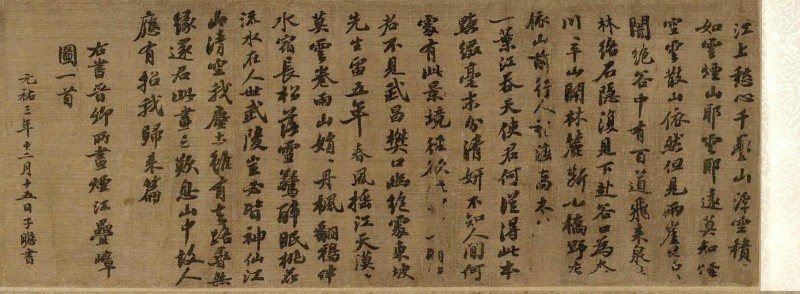 江上愁心千疊山浮空積
如雲煙山耶雲耶遠莫知煙
空雲散山依然但見兩崖蒼〻
闇絕谷中有百道飛來泉
林絡石隱復見下赴谷口為
川〻平山開林麓斷小橋野店
依山前行人稍度喬木
一葉江吞天使君何從得此本
點綴毫末分清妍不知人間何
處有此景境徑欲
君不見武昌樊口幽絕處東坡
先生留五年春風搖江天漠〻
莫雲卷雨山娟〻丹楓翻鴉伴
水宿長松落雪驚醉眠桃花
流水在人世武陵豈必皆神仙江
山清空我塵土雖有去路尋無
緣還君此畫三歎息山中故人
應有招我歸來篇
右書晉卿所畫煙江疊嶂
圖一首
元祐三年十二月十五日子瞻書